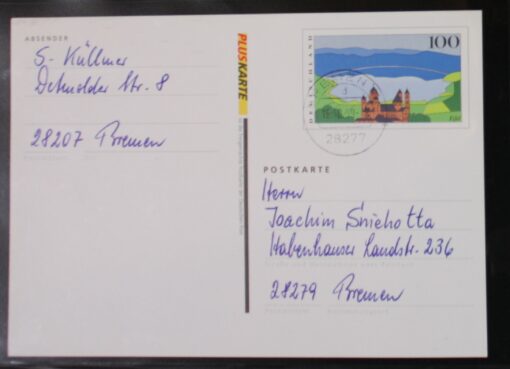 ABSENDER
S. Küllmer
Detmolder Str. 8
28207 Bremen
PLUSKARTE
DEUTSCHLAND
100
28277
POSTKARTE
Herrn
Joachim Sniehotta
Habenhauser Landstr. 236
28279 Bremen